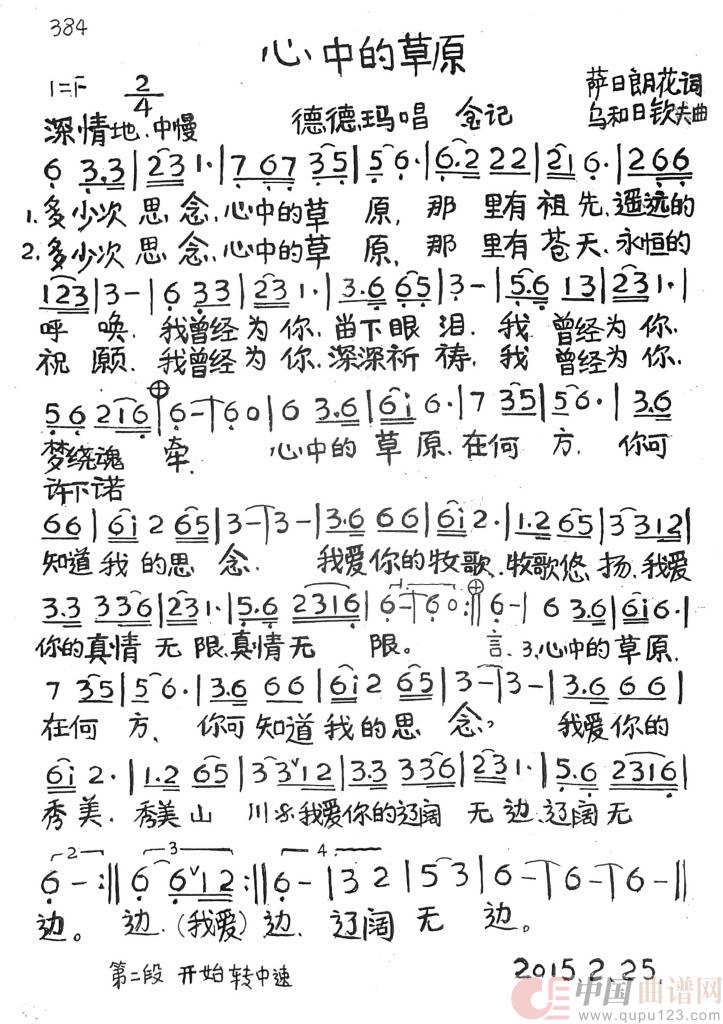 384
心中的草原
1=F 2/4
萨日朗花词
深情地.中慢 德德玛唱 金记 乌和日钦夫曲
6 3.3|231·|7 67 35|56·|6.2 22|216·|266|
1.多少次思念,心中的草原,那里有祖先,遥远的
2.多少次思念,心中的草原,那里有苍天,永恒的
123|3-|6 33|231·|3.6 65|3-|5.6 13|231·|
呼唤.我曾经为你.留下眼泪.我曾经为你.
祝愿.我曾经为你.深深祈祷.我曾经为你.
56 216|6-|60|6 3.6|6i 6·|7 35|56·|3.6
梦绕魂牵. 心中的草原.在何方.你可
许下诺
66|6i 2 65|3-|3-|3.6 66|6i 2·|1.2 65|3312|
知道我的思念. 我爱你的牧歌.牧歌悠扬.我爱
3.3 336|231·|5.6 2316|6-|60:‖6-|6 3.6|6i6·|
你的真情无限.真情无限。 言.3.心中的草原.
7 35|56·|3.6 66|6i2 65|3-|3-|3.6 66|
在何方.你可知道我的思念, 我爱你的
6i 2·|1.2 65|33∨12|3.3 336|231·|5.6 2316|
秀美.秀美山川.我爱你的辽阔无边.辽阔无
2 3 4
6-:‖6 6∨12:‖6-|32|53|6-|6-|6-‖
边。边.(我爱)边.辽阔无边。
第二段 开始转中速 2015.2.25.
中国曲谱网
www.qupu123.com